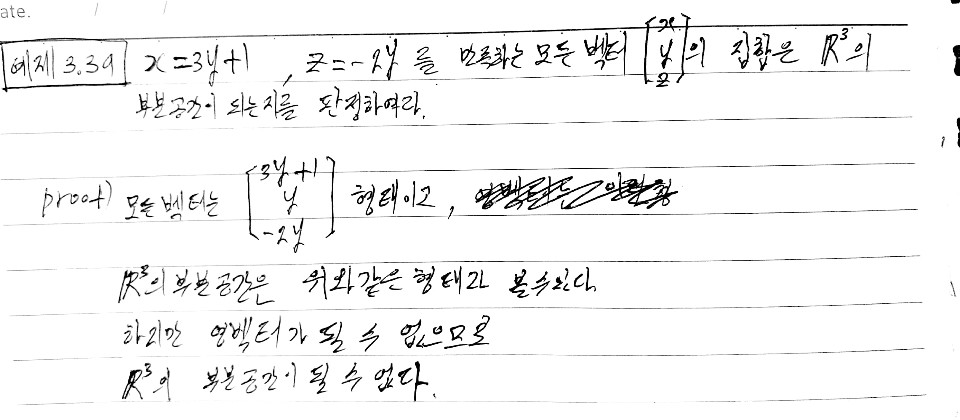 ate. / /
예제 3.39 x=3y+1 , z=-2y 를 만족하는 모든 벡터 [x y z]의 집합은 ℝ³의
부분공간이 되는지를 판정하여라.
proof) 모든 벡터는 [3y+1 y -2y] 형태이고,
ℝ³의 부분공간은 위와같은 형태라 볼수있다.
하지만 영벡터가 될 수 없으므로
ℝ³의 부분공간이 될 수 없다.